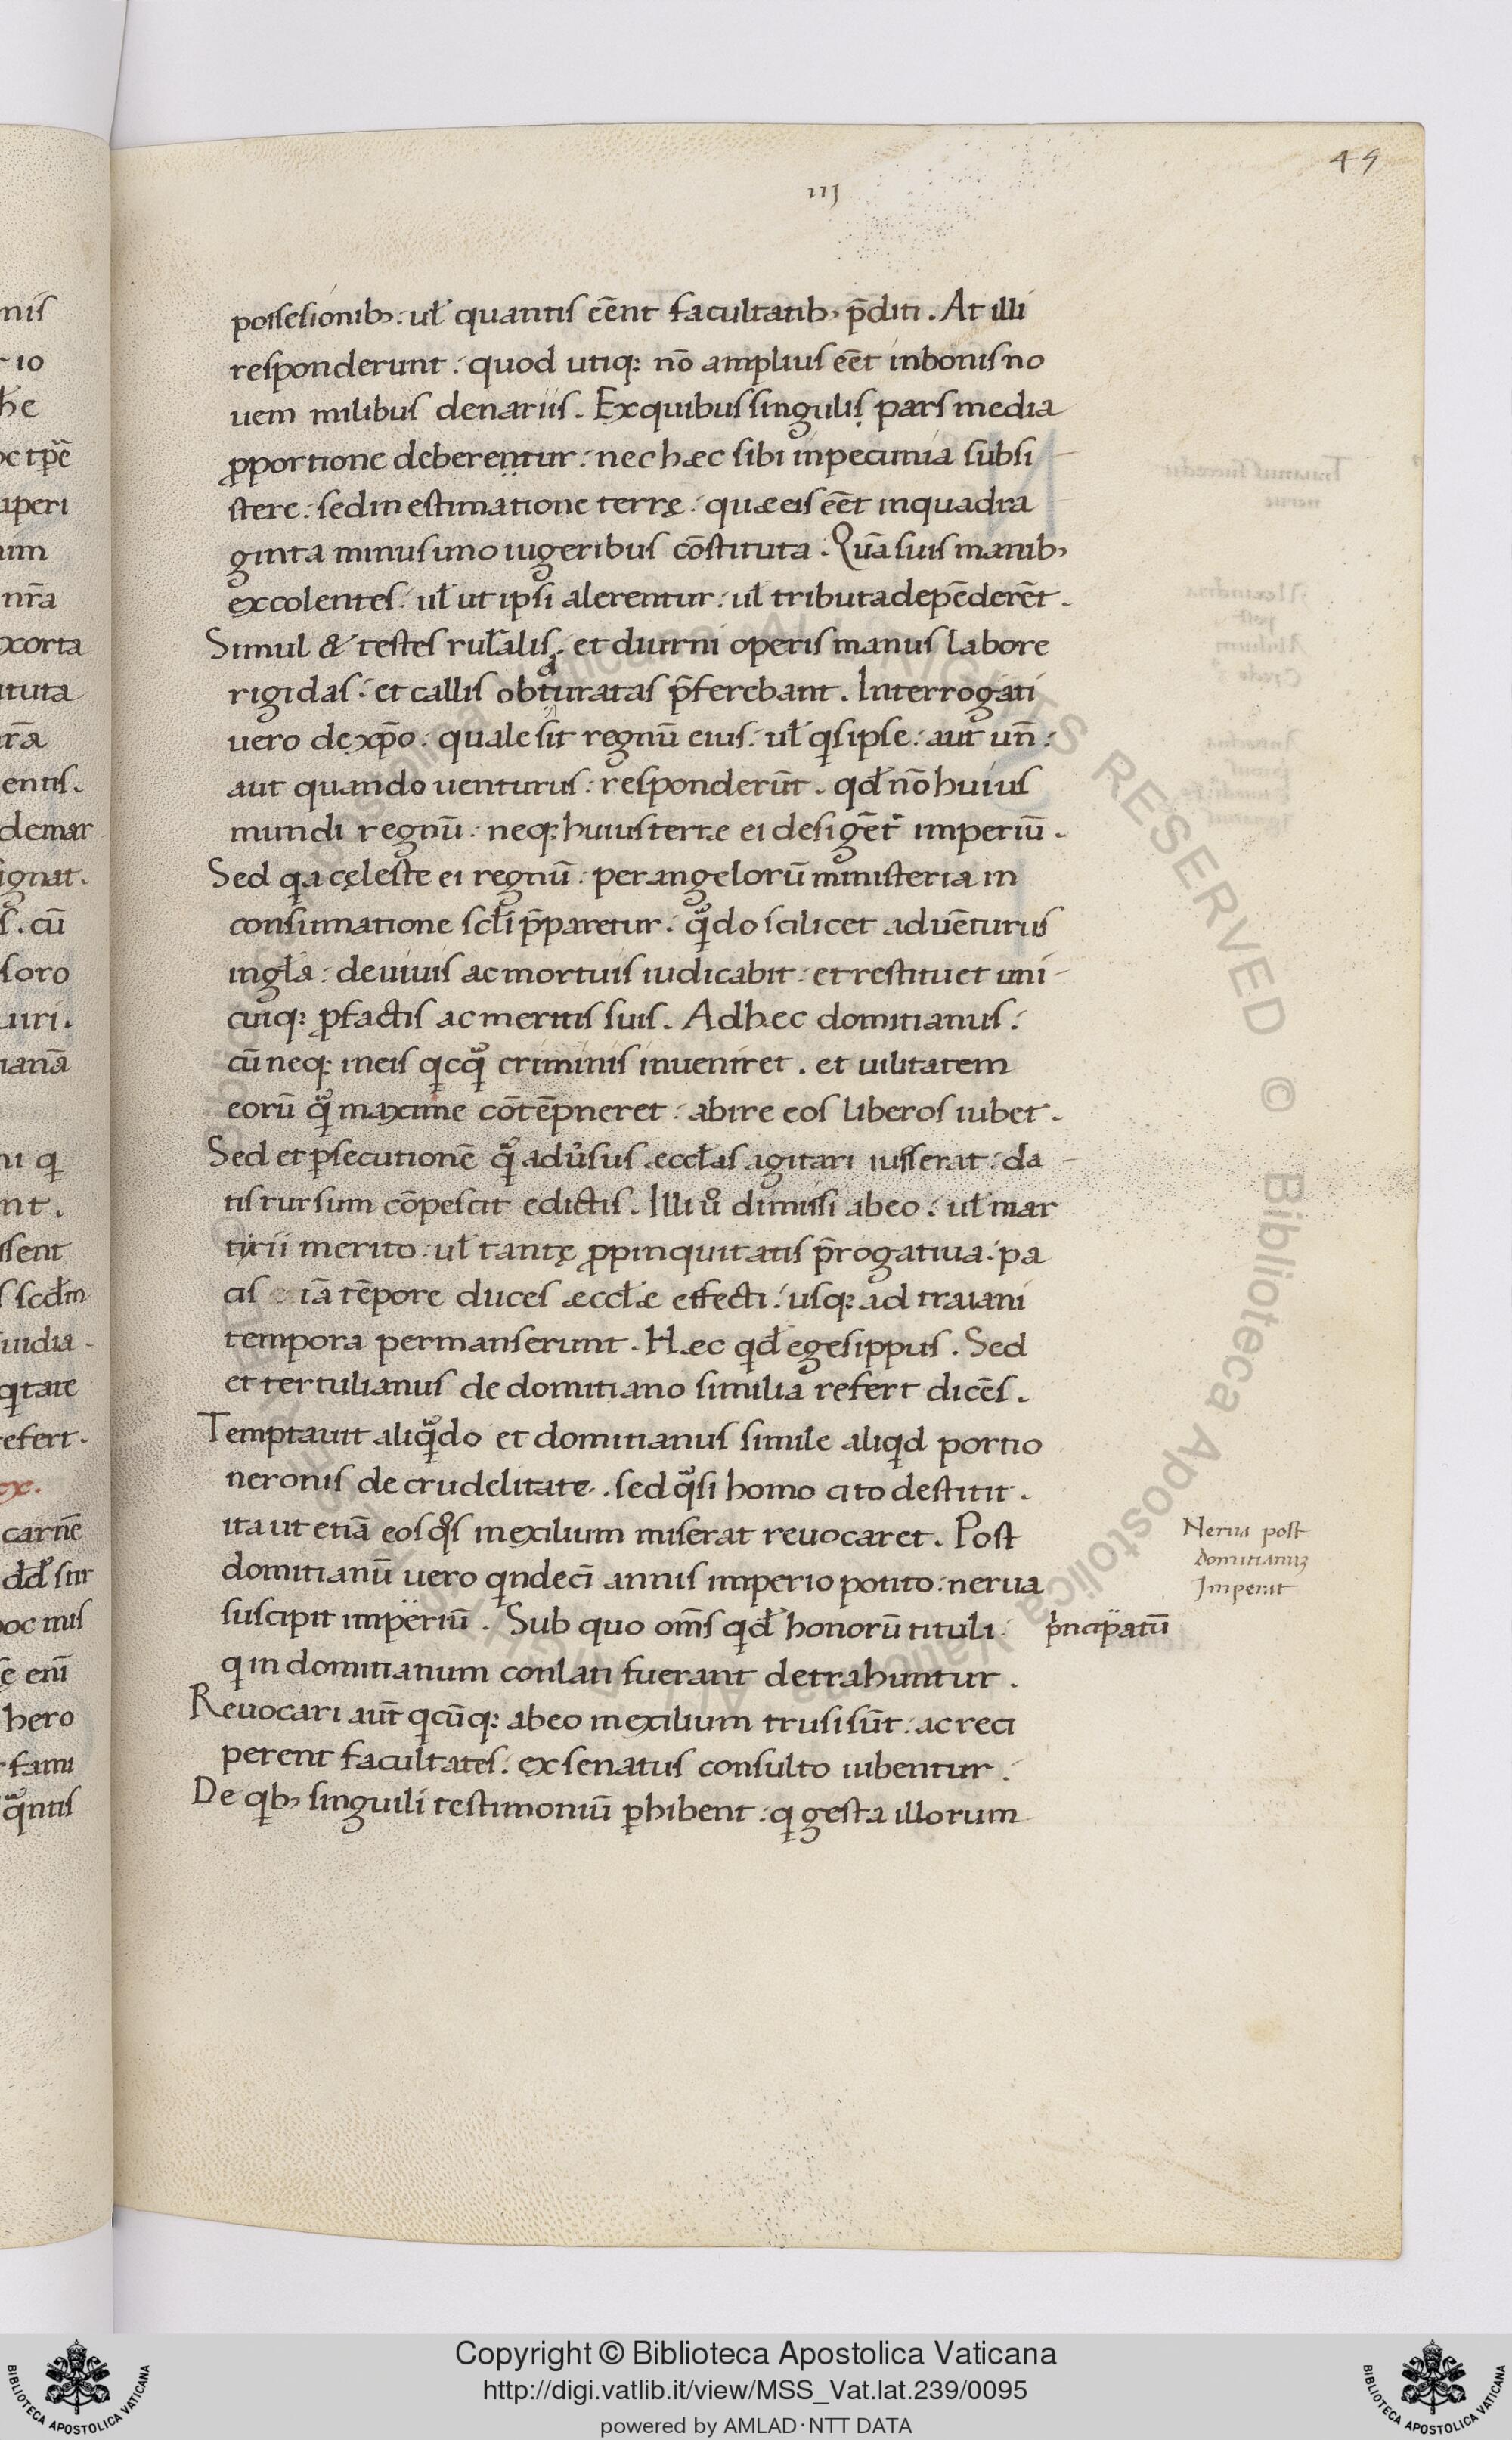 49
iij
possesionibꝫ. ul̃ quantis eēnt facultatibꝫ p̄diti. At illi
responderunt. quod utiqꝫ nō amplius eēt inbonis no
uem milibus denariis. Exquibus singulis pars media
ꝓportione deberentur. nec hæc sibi inpecunia subsi
stere. sedin estimatione terrę. quæ eis eēt inquadra
ginta minus uno iugeribus cōstituta. Quā suis manibꝫ
excolentes. ul̃ ut ipsi alerentur. ul̃ tributa depēderēt.
Simul & testes ruralis. et diurni operis manus labore
rigidas. et callis obturatas p̄ferebant. Interrogati
uero de xp̄o. quale sit regnū eius. ul̃ qͥs ipse. aut un̄.
aut quando uenturus. responderūt. qd̃ nō huius
mundi regnū. neqꝫ huius terræ ei desigēt᷑ imperiū.
Sed qͥa cęleste ei regnū. per angelorū ministeria in
consummatione scl̃i p̄pararetur. qͣ̃do scilicet aduēturus
ingl̃a. deuiuis ac mortuis iudicabit. et restituet uni
cuiqꝫ ꝓfactis ac meritis suis. Adhec domitianus.
cū neqꝫ ineis qͥcqͣ̃ criminis inueniret. et uilitatem
eorū qͣ̃ maxime cōtēpneret. abire eos liberos iubet.
Sed et ꝑsecutionē qͣ̃ adu̓sus æccl̃as agitari iusserat. da
tis rursum cōpescit edictis. Illi uº dimissi abeo. ul̃ mar
tirii merito. ul̃ tantę ꝓpinquitatis p̄rogatiua. pa
cis iā tēpore duces æccl̃æ effecti. usqꝫ ad traiani
tempora permanserunt. Hæc qd̃ egesippus. Sed
et tertulianus de domitiano similia refert dicēs.
Temptauit aliqͣ̃do et domitianus simile aliqͥd portio
neronis de crudelitate. sed qͣsi homo cito destitit.
ita ut etiā eos qºs inexilium miserat reuocaret. Post
domitianū uero qͥndeci᷑ annis imperio potito. nerua
suscipit imperiū. Sub quo om̄s qd̃ honorū tituli pͥncipatū
qͥ in domitianum conlati fuerant detrahuntur.
Reuocari aūt qͥcūqꝫ abeo inexilium trusi sūt. ac reci
perent facultates. ex senatus consulto iubentur.
De qͥbꝫ singuili testimoniū ꝑhibent. qͥ gesta illorum
Nerua post
domitianuꝫ
Imperat
Copyright © Biblioteca Apostolica Vaticana
http://digi.vatlib.it/view/MSS_Vat.lat.239/0095
powered by AMLAD·NTT DATA
BIBLIOTECA APOSTOLICA VATICANA
BIBLIOTECA APOSTOLICA VATICANA